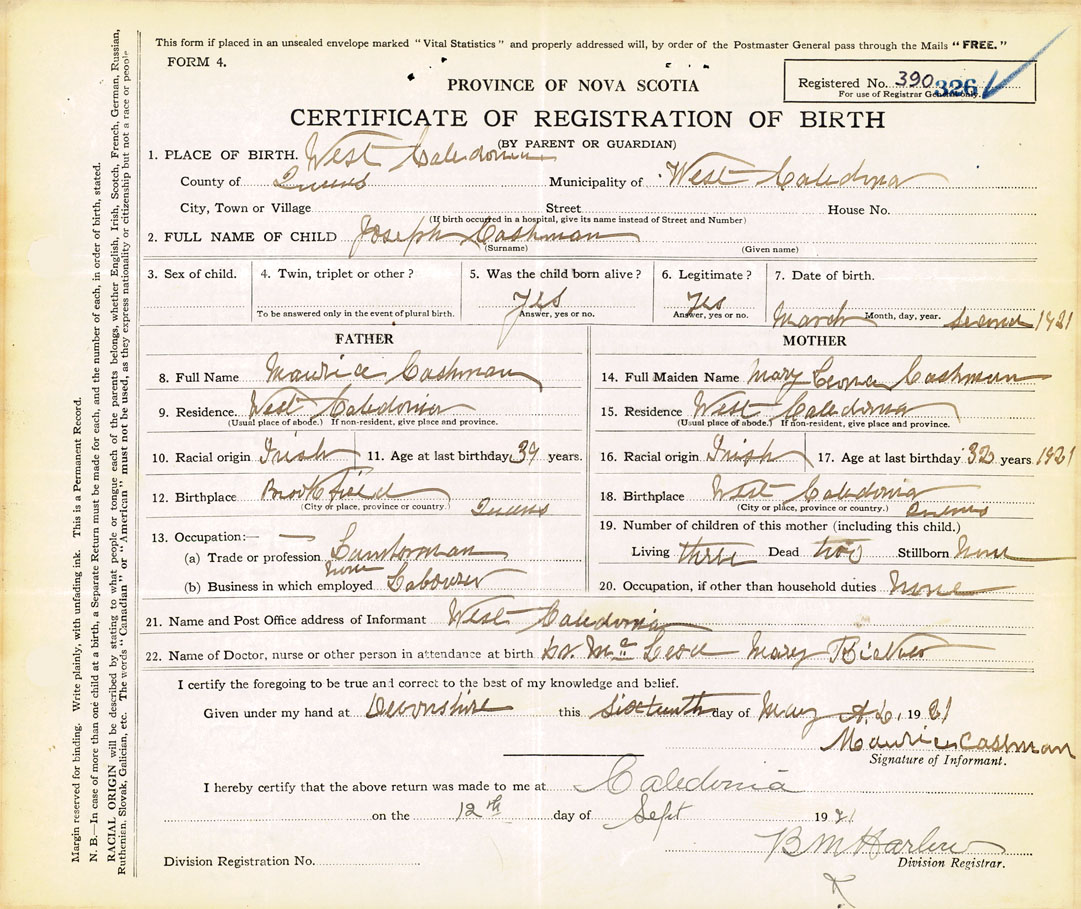 This form if placed in an unsealed envelope marked "Vital Statistics" and properly addressed will, by order of the Postmaster General pass through the Mails "FREE."
FORM 4.
PROVINCE OF NOVA SCOTIA
Registered No. 390 326
For use of Registrar General only.
CERTIFICATE OF REGISTRATION OF BIRTH
(BY PARENT OR GUARDIAN)
1. PLACE OF BIRTH. West Caledonia
County of Queens Municipality of West Caledonia
City, Town or Village Street House No.
(If birth occurred in a hospital, give its name instead of Street and Number)
2. FULL NAME OF CHILD Joseph Cashman
(Surname) (Given name)
3. Sex of child. 4. Twin, triplet or other? 5. Was the child born alive? 6. Legitimate? 7. Date of birth.
yes yes
To be answered only in the event of plural birth. Answer, yes or no. Answer, yes or no. March Month, day, year. second 1921
FATHER MOTHER
8. Full Name Maurice Cashman 14. Full Maiden Name Mary Leona Cashman
9. Residence. West Caledonia 15. Residence West Caledonia
(Usual place of abode.) If non-resident, give place and province. (Usual place of abode.) If non-resident, give place and province.
10. Racial origin Irish 11. Age at last birthday 39 years. 16. Racial origin Irish 17. Age at last birthday 32 years 1921
12. Birthplace Brookfield 18. Birthplace West Caledonia
(City or place, province or country.) Queens (City or place, province or country.) Queens
19. Number of children of this mother (including this child.)
13. Occupation:—
(a) Trade or profession Living three Dead two Stillborn none
none
(b) Business in which employed Labourer 20. Occupation, if other than household duties none
21. Name and Post Office address of Informant West Caledonia
22. Name of Doctor, nurse or other person in attendance at birth Dr. Mc Mary
I certify the foregoing to be true and correct to the best of my knowledge and belief.
Given under my hand at Devonshire this sixteenth day of May A.D. 1921
Maurice Cashman
Signature of Informant.
I hereby certify that the above return was made to me at Caledonia
on the 12th day of Sept 1921
B M Harlow
Division Registrar.
Division Registration No.
Margin reserved for binding. Write plainly, with unfading ink. This is a Permanent Record.
N. B.—In case of more than one child at a birth, a Separate Return must be made for each, and the number of each, in order of birth, stated.
RACIAL ORIGIN will be described by stating to what people or tongue each of the parents belongs, whether English, Irish, Scotch, French, German, Russian,
Ruthenian, Slovak, Galician, etc. The words "Canadian" or "American" must not be used, as they express nationality or citizenship but not a race or people